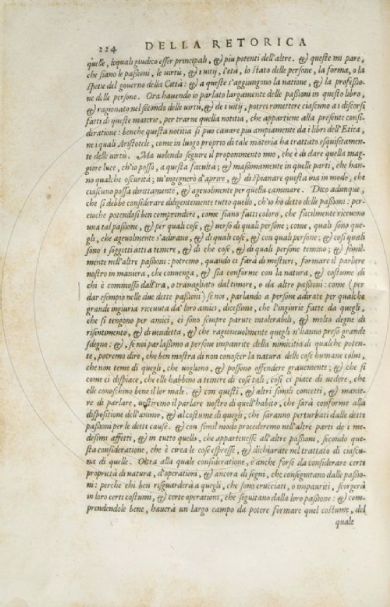 224 DELLA RETORICA
quelle, lequali giudico esser principali, & più potenti dell'altre. & queste mi pare,
che siano le passioni, le uirtù, & i uitij, l'età, lo stato delle persone, la forma, o la
spetie del gouerno della Città: & a queste s'aggiungono la natione, & la professio-
ne delle persone. Ora hauendo io parlato largamente delle passioni in questo libro,
& ragionato nel secondo delle uirtù, & de i uitij, potrei rimettere ciascuno a i discorsi
fatti di queste materie, per trarne quella notitia, che appartiene alla presente consi-
deratione: benche questa notitia si può cauare più ampiamente da i libri dell'Etica,
ne i quali Aristotele, come in luogo proprio di tale materia ha trattato esquisitamen-
te delle uirtù. Ma uolendo seguire il proponimento mio, che è di dare quella mag-
gior luce, ch'io posso, a questa facultà; & massimamente in quelle parti, che han-
no qualche oscurità; m'ingegnerò d'aprire, & di spianare questa uia in modo, che
ciascuno possa dirittamente, & ageuolmente per quella caminare. Dico adunque,
che si debbe considerare diligentemente tutto quello, ch'io ho detto delle passioni: per-
cioche potendosi ben comprendere, come siano fatti coloro, che facilmente riceuono
una tal passione, & per quali cose, & uerso di quali persone; come, quali sono que-
gli, che ageuolmente s'adirano, & di quali cose, & con quali persone; & così quali
sono i soggetti atti a temere, & di che cose, & di quali persone temono; & simil-
mente nell'altre passioni: potremo, quando ci sarà di mestieri, formare il parlare
nostro in maniera, che conuenga, & sia conforme con la natura, & costume di
chi è commosso dall'ira, o tranagliato dal timore, o da altre passioni: come (per
dar esempio nelle due dette passioni) se noi, parlando a persone adirate per qualche
grande ingiuria riceuuta da i loro amici, diremo, che l'ingiurie fatte da quegli,
che si tengono per amici, ci sono sempre parute intolerabili, & molto degne di
risentimento, & di uendetta, & che ragioneuolmente quegli n'hanno preso grande
sdegno: &, se noi parlassimo a persone impaurite della nimicitia di qualche poten-
te, potremo dire, che ben mostra di non conoscer la natura delle cose humane colui,
che non teme di quegli, che uogliono, & possono offendere grauemente; & che si
come ci dispiace, che elle habbiano a temere di cose tali, così ci piace di uedere, che
elle conoschino bene il lor male. & con questi, & altri simili concetti, & manie-
re di parlare, uestiremo il parlare nostro di quell'habito, che sarà conforme alla
dispositione dell'animo, & al costume di quegli, che saranno perturbati dalle dette
passioni per le dette cause. & con simil modo procederemo nell'altre parti de i me-
desimi affetti, & in tutto quello, che appartenesse all'altre passioni, secondo que-
sta consideratione, che è circa le cose espresse, & dichiarate nel trattato di ciascu-
na di quelle. Oltra alla quale consideratione, è anche forse da considerare certe
proprietà di natura, d'operationi, & ancora di segni, che conseguitano dalle passio-
ni: perche chi ben risguarderà quegli, che sono crucciati, o impauriti, scorgerà
in loro certi costumi, & certe operationi, che seguitano dalla loro passione: & com-
prendendole bene, hauerà un largo campo da potere formare quel costume, del
quale